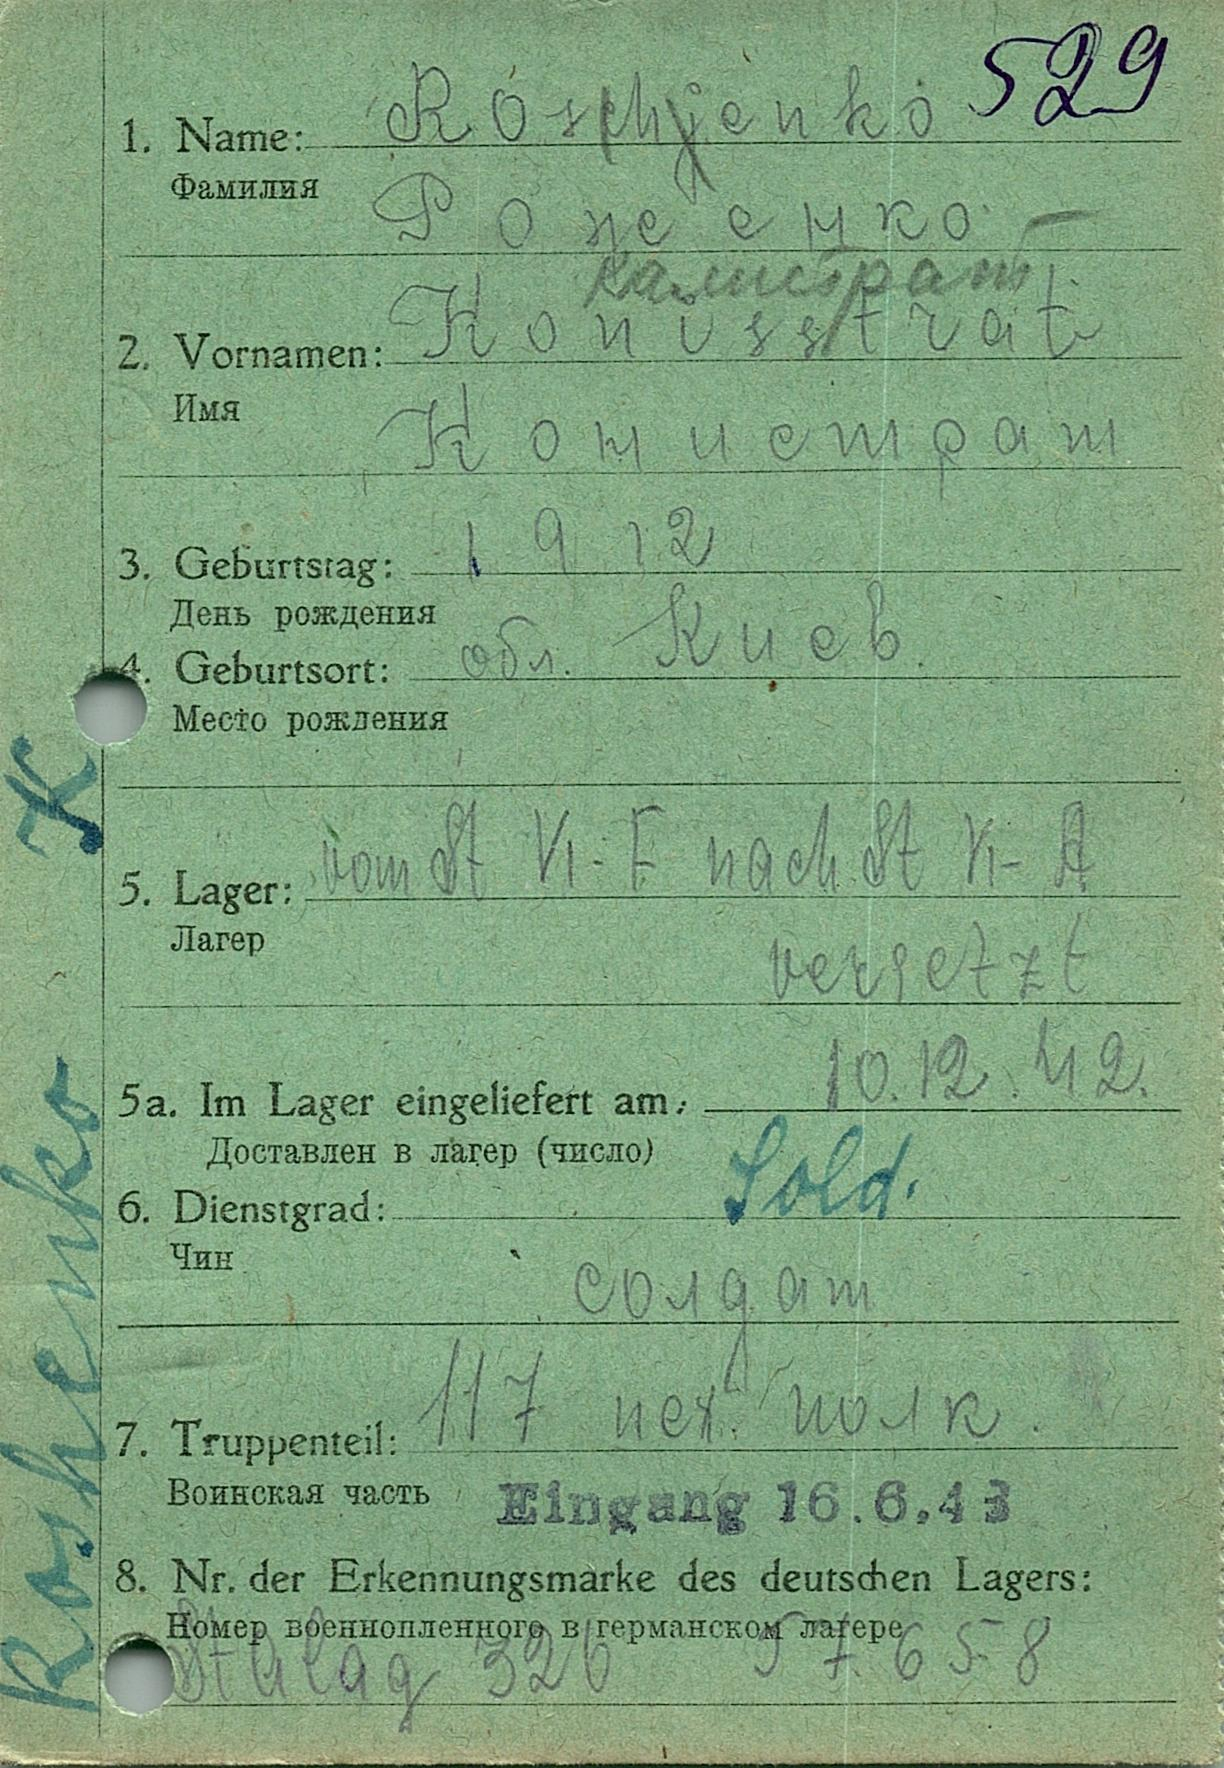 529
1. Name: Roschjenko
Фамилия
Роженко
Калистрат
2. Vornamen: Konisstrat
Имя
Конистрат
3. Geburtstag: 1912
День рождения
4. Geburtsort: обл. Киев.
Место рождения
5. Lager: vom St VI-F nach St VI-A
Лагер
versetzt
5a. Im Lager eingeliefert am: 10.12.42.
Доставлен в лагер (число)
Sold.
6. Dienstgrad:
Чин
солдат
7. Truppenteil: 117 пех. полк.
Воинская часть
Eingang 16.6.43
8. Nr. der Erkennungsmarke des deutschen Lagers:
Номер военнопленного в германском лагере
Stalag 326 57658
Roshenko K